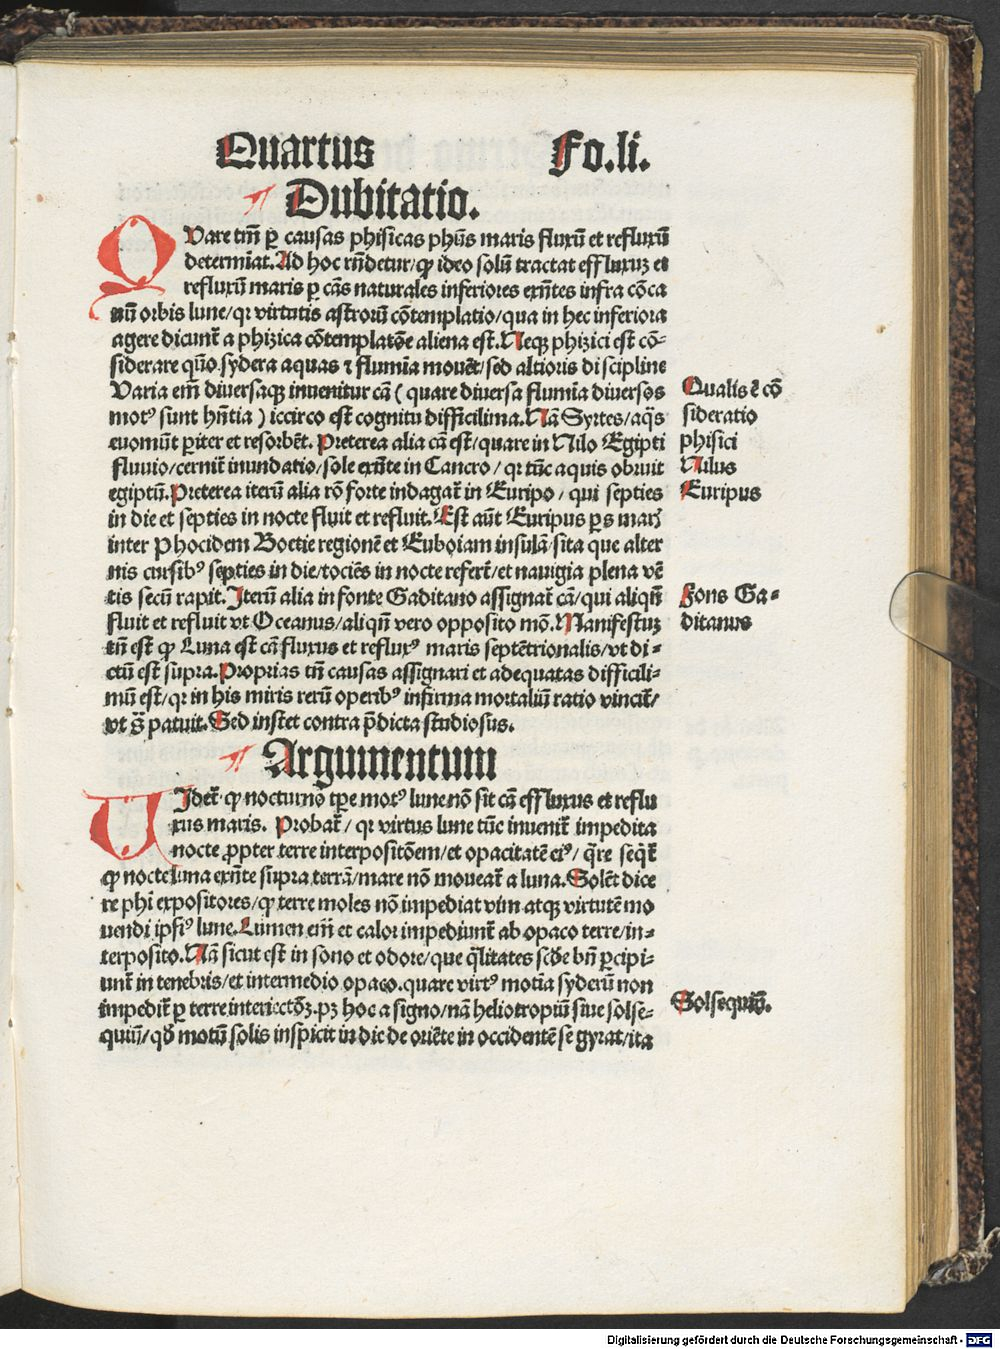 Quartus Fo.li.
¶ Dubitatio.
QVare tm̄ ꝑ causas phisicas phūs maris fluxū et refluxū
determīat. Ad hoc rn̄detur/ꝙ ideo solū tractat effluxuꝫ et
refluxū maris ꝑ cās naturales inferiores exn̄tes infra cōca
uū orbis lune/qꝛ virtutis astrorū cōtemplatio/qua in hec inferiora
agere dicunt̄ a phizica cōtemplatōe aliena est. Necꝗ phizici est cō-
siderare quō.sydera aquas ⁊ flumīa movēt/sed altioris discipline
Varia em̄ diversaqꝫ invenitur cā ( quare diversa flumīa diversos
motꝰ sunt hn̄tia ) iccirco est cognitu difficilima. Nā Syrtes/aq̄s
evomūt ꝑiter et resorbēt. Preterea alia cā est/quare in Nilo Egipti
fluvio/cernit̄ inundatio/sole exn̄te in Cancro/qꝛ tūc aquis obruit
egiptū. Preterea iterū alia rō forte indagat̄ in Euripo/qui septies
in die et septies in nocte fluit et refluit. Est aūt Euripus ꝑs mar̄
inter Phocidem Boetie regionē et Euboiam insulā sita que alter
nis cursibꝰ septies in die/tociēs in nocte refert̄/et navigia plena vē
tis secū rapit. Iterū alia in fonte Gaditano assignat̄ cā/qui aliqn̄
fluit et refluit vt Oceanus/aliqn̄ vero opposito mō. Manifestuꝫ
tn̄ est ꝙ Luna est cā fluxus et refluxꝰ maris septētrionalis/vt di-
ctū est supra. Proprias tn̄ causas assignari et adequatas difficili-
mū est/qꝛ in his miris rerū operibꝰ infirma mortaliū ratio vincit̄/
vt s̄ patuit. Sed instet contra p̄dicta studiosus.
¶ Argumentum
VIdet̄ ꝙ nocturno tꝑe motꝰ lune nō sit cā effluxus et reflu
xus maris. Probat̄/qꝛ virtus lune tūc invenit̄ impedita
nocte ꝓpter terre interpositōem/et opacitatē eiꝰ/q̄re seqt̄
ꝙ nocte luna exn̄te supra terrā/mare nō moveat̄ a luna. Solēt dice
re phi expositores/ꝙ terre moles nō impediat vim atqꝫ virtutē mo
vendi ipsiꝰ lune. Lumen em̄ et calor impediunt̄ ab opaco terre/in-
terposito. Nā sicut est in sono et odore/que q̄litates scōe bn̄ ꝑcipi-
unt̄ in tenebris/et intermedio opaco.quare virtꝰ motīa syderū non
impedit̄ ꝑ terre interiectōꝫ.pꝫ hoc a signo/nā heliotropiū sive solse-
quiū/qd̄ motū solis inspicit in die de oriēte in occidentē se gyrat/ita
Qualis ē cō
sideratio
phisici
Nilus
Euripus
Fons Ga-
ditanus
Solsequiū.
Digitalisierung gefördert durch die Deutsche Forschungsgemeinschaft - DFG